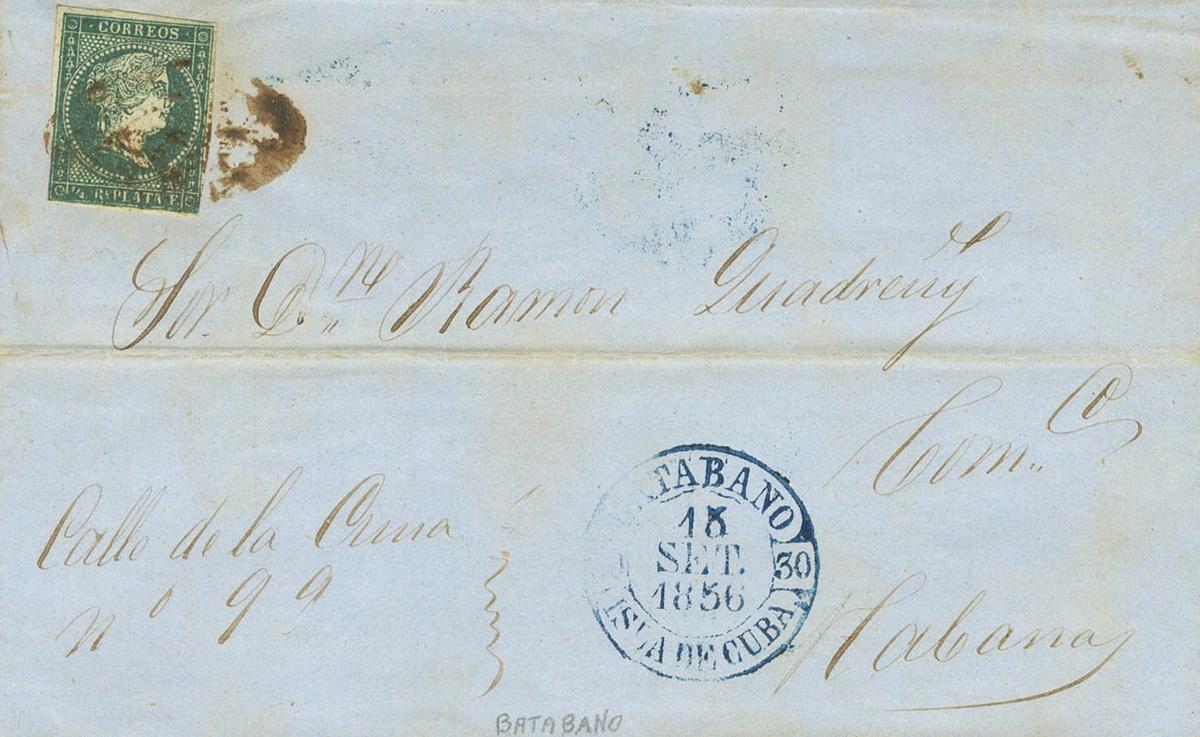 CORREOS
1/4 Rl PLATA F.
Sor. Dn. Ramon Quadreny
Com.co
Calle de la Cuna
no 99
BATABANO
15
SET.
1856
30
ISLA DE CUBA
Habana
BATABANO